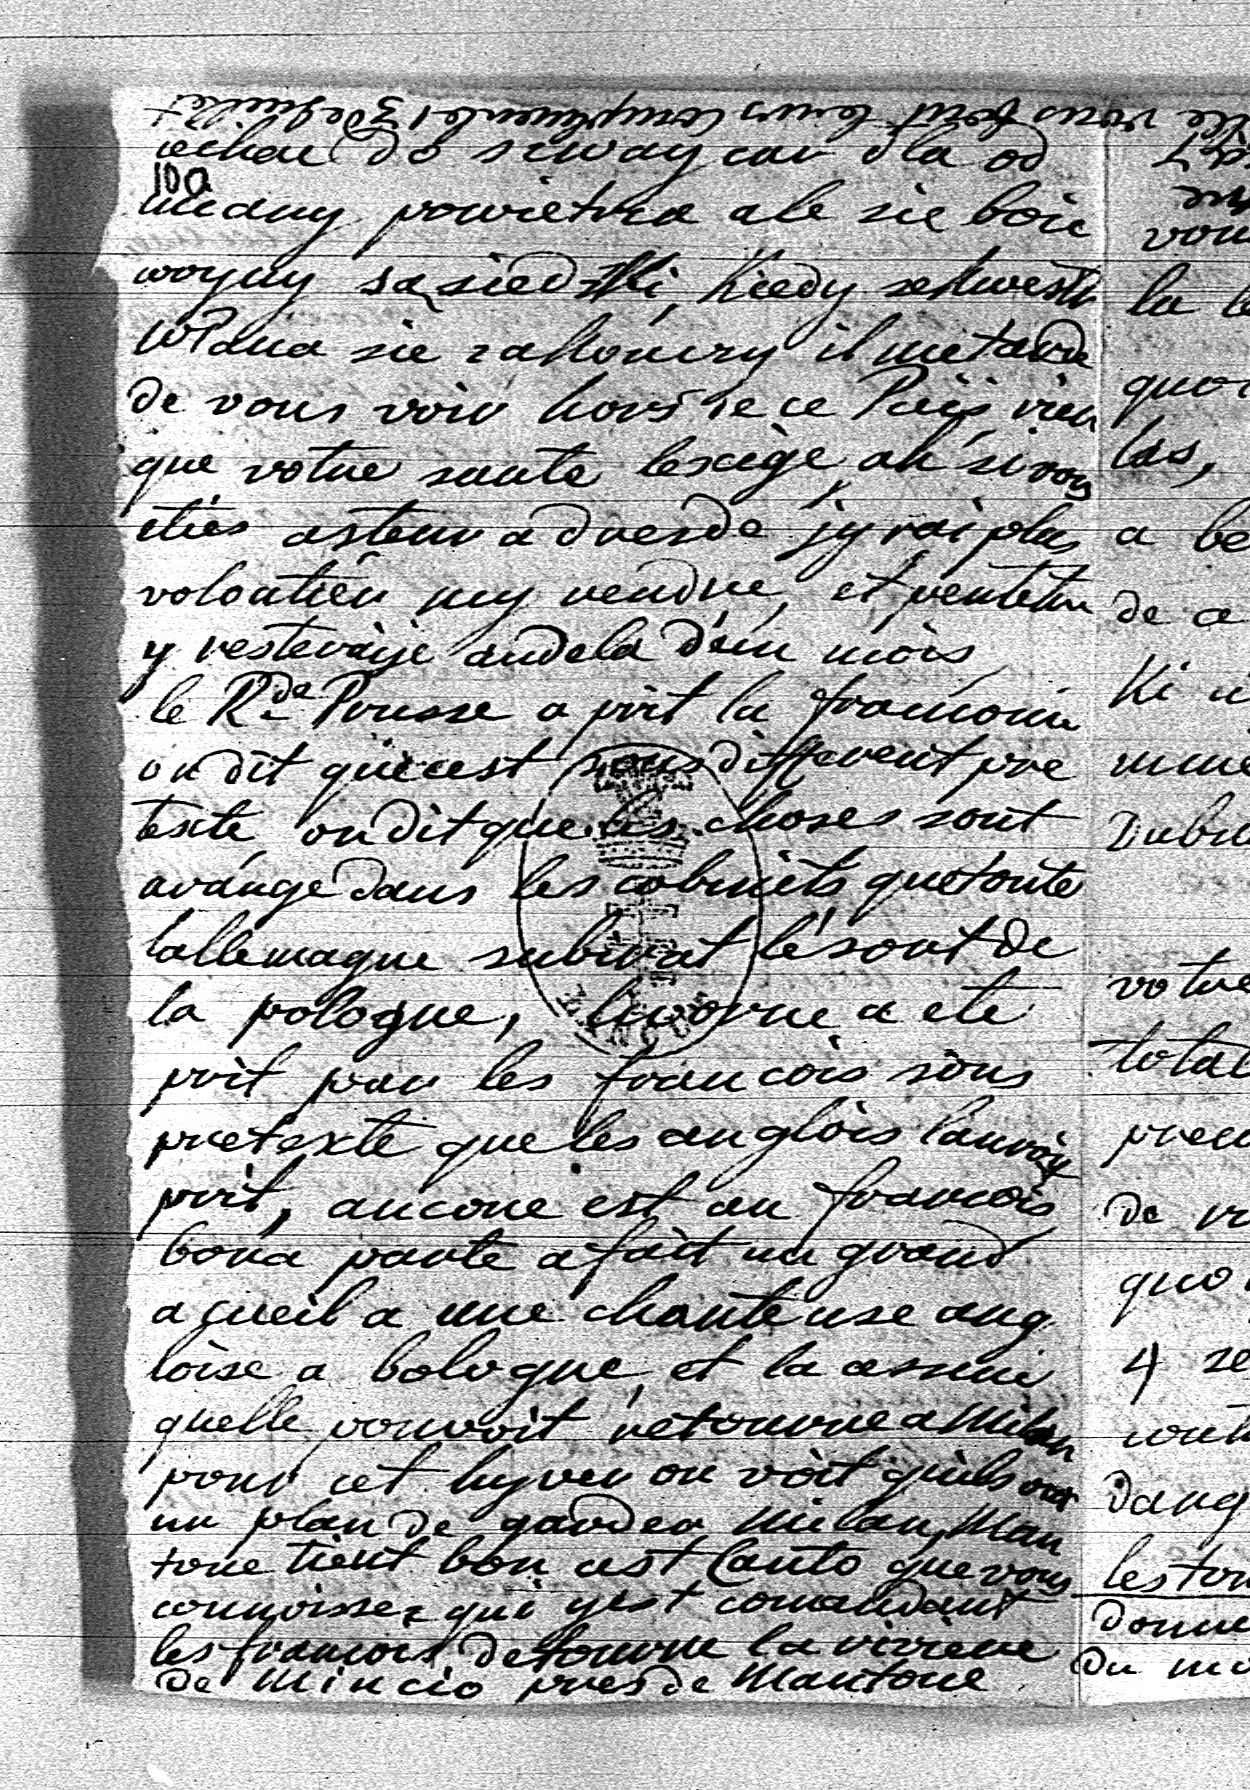 vous font leurs complimens 13 de juillet
iechac do szwaycar dla od
10a
miany powietrza ale sie boie
woyny sąsiedzki, kiedy sekwestr
WPana sie zakonczy il me tarde
de vous voir hors de ce Païs, rien
que votre sante lexige, ah si vous
eties asteur a dresde j'y rai plus
volontier my rendre, et peutetre
y resteraije audela d'ein mois
le R. de Prusse a prit la franconie
on dit que cest sous different pre
texte on dit que les choses sont
avange dans les cabinets que toute
lallemagne subirat le sort de
la pologne, livorne a ete
prit par les francois sous
pretexte que les anglois lauroit
prit, ancone est au francois
bona parte a fait un grand
a cueil a une chanteuse ang
loise a bologne, et la assuré
quelle pouvoit retourne a Milan
pour cet hyver on voit quils ont
un plan de garder Milan, Man
toue tient bon cest Canto que vous
connoissez qui yest comandant
les francois detourne la riviere
de Mincio pres de Mantoue
vous
la
quoi
las,
a
de ce
Ki
votre
total
de
4
les
donne
du